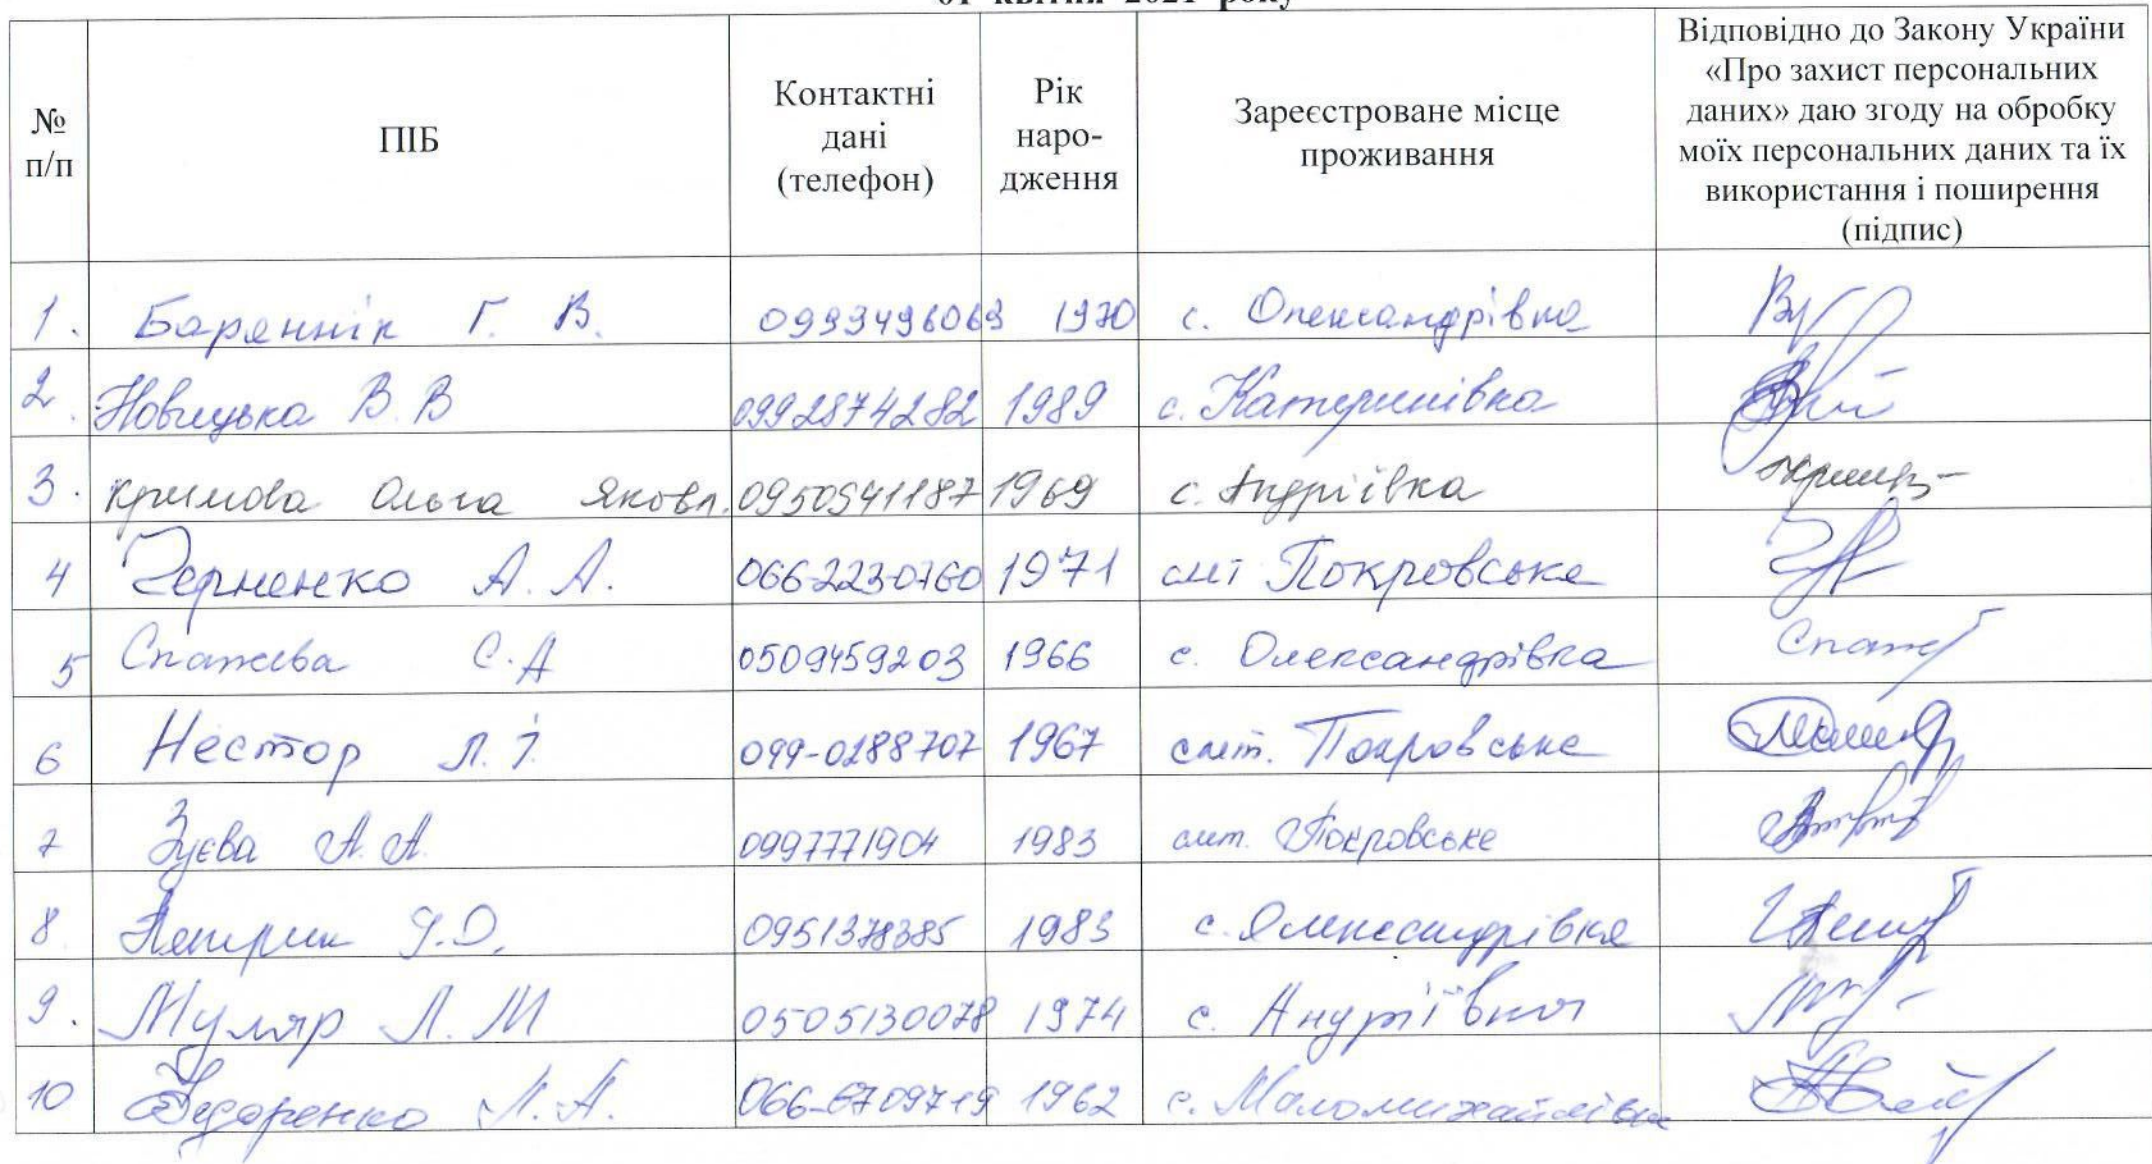 01 квітня 2021 року
№ п/п
ПІБ
Контактні дані (телефон)
Рік наро-дження
Зареєстроване місце проживання
Відповідно до Закону України
«Про захист персональних
даних» даю згоду на обробку
моїх персональних даних та їх
використання і поширення
(підпис)
1. Баряннік Г. В. 0993496069 1970 с. Олександрівка
2. Новицька В. В 0992874282 1989 с. Катеринівка
3. Кримова Ольга Яковл. 0950541187 1969 с. Андріївка
4 Черненко А. А. 066-2230760 1971 смт Покровське
5 С.А 0509459203 1966 с. Олександрівка
6 Нестор Л. І. 099-0288707 1967 смт. Покровське
7 Зуєва А. А. 0997771904 1983 смт. Покровське
8 0951378385 1983 с. Олександрівка
9. Муляр Л. М 0505130078 1974 с. Андріївка
10 Федоренко Л. А. 066-6709719 1962 с. Маломихайлівка